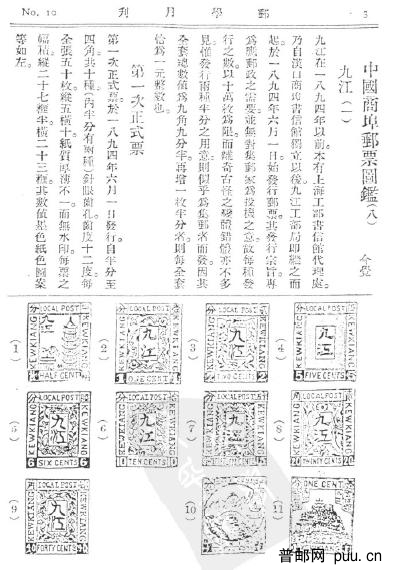 No. 10 刊月學郵 3
中國商埠郵票圖鑑(八) 今覺
九江(一)
九江在一八九四年以前。本有上海工部書信館代理處。
乃自漢口商埠書信館獨立以後。九江工部局即繼之而
起。於一八九四年六月一日。始發行郵票。其發行宗旨。專
爲應郵政之需要。並無對集郵家爲投機之意。故每種發
行之數。以十萬枚爲限。而離奇古怪之變體錯體。亦不多
見。惟發行兩種半分之用意。則似乎爲集郵者而發。因其
全套總數値爲九角九分半。再增一枚半分者。則每全套
恰爲一元整數也。
第一次正式票
第一次正式票。於一八九四年六月一日發行。自半分至
四角共十種。內半分有兩種。斜眼齒孔。齒度十二度。每
全張五十枚。縱五橫十。紙質厚薄不一。而無水印。每票之
幅積。縱二十七粍半。橫二十三粍。其數值墨色紙色圖案
等如左。
(1) LOCAL POST KEWKIANG 九江 HALF CENT
(2) LOCAL POST KEWKIANG 九江 1 ONE CENT 1
(3) LOCAL POST KEWKIANG 九江 CENTS 2
(4) LOCAL POST KEWKIANG 九江 5 FIVE CENTS
(5) LOCAL POST KEWKIANG 九江 6 SIX CENTS 6
(6) LOCAL POST KEWKIANG 九江 TEN CENTS
(7) LOCAL POST KEWKIANG 九江
(8) LOCAL POST KEWKIANG 九江 THIRTY CENTS
(9) LOCAL POST KEWKIANG 九江 40 FORTY CENTS 40
(10)
(11) ONE CENT
普邮网 puu.cn